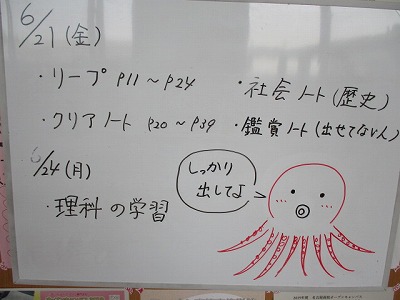 6/21(金)
・リープ P11～P24 ・社会ノート(歴史)
・クリアノート P20～P39 ・鑑賞ノート(出せてない人)
6/24(月)
・理科の学習
しっかり
出してよ